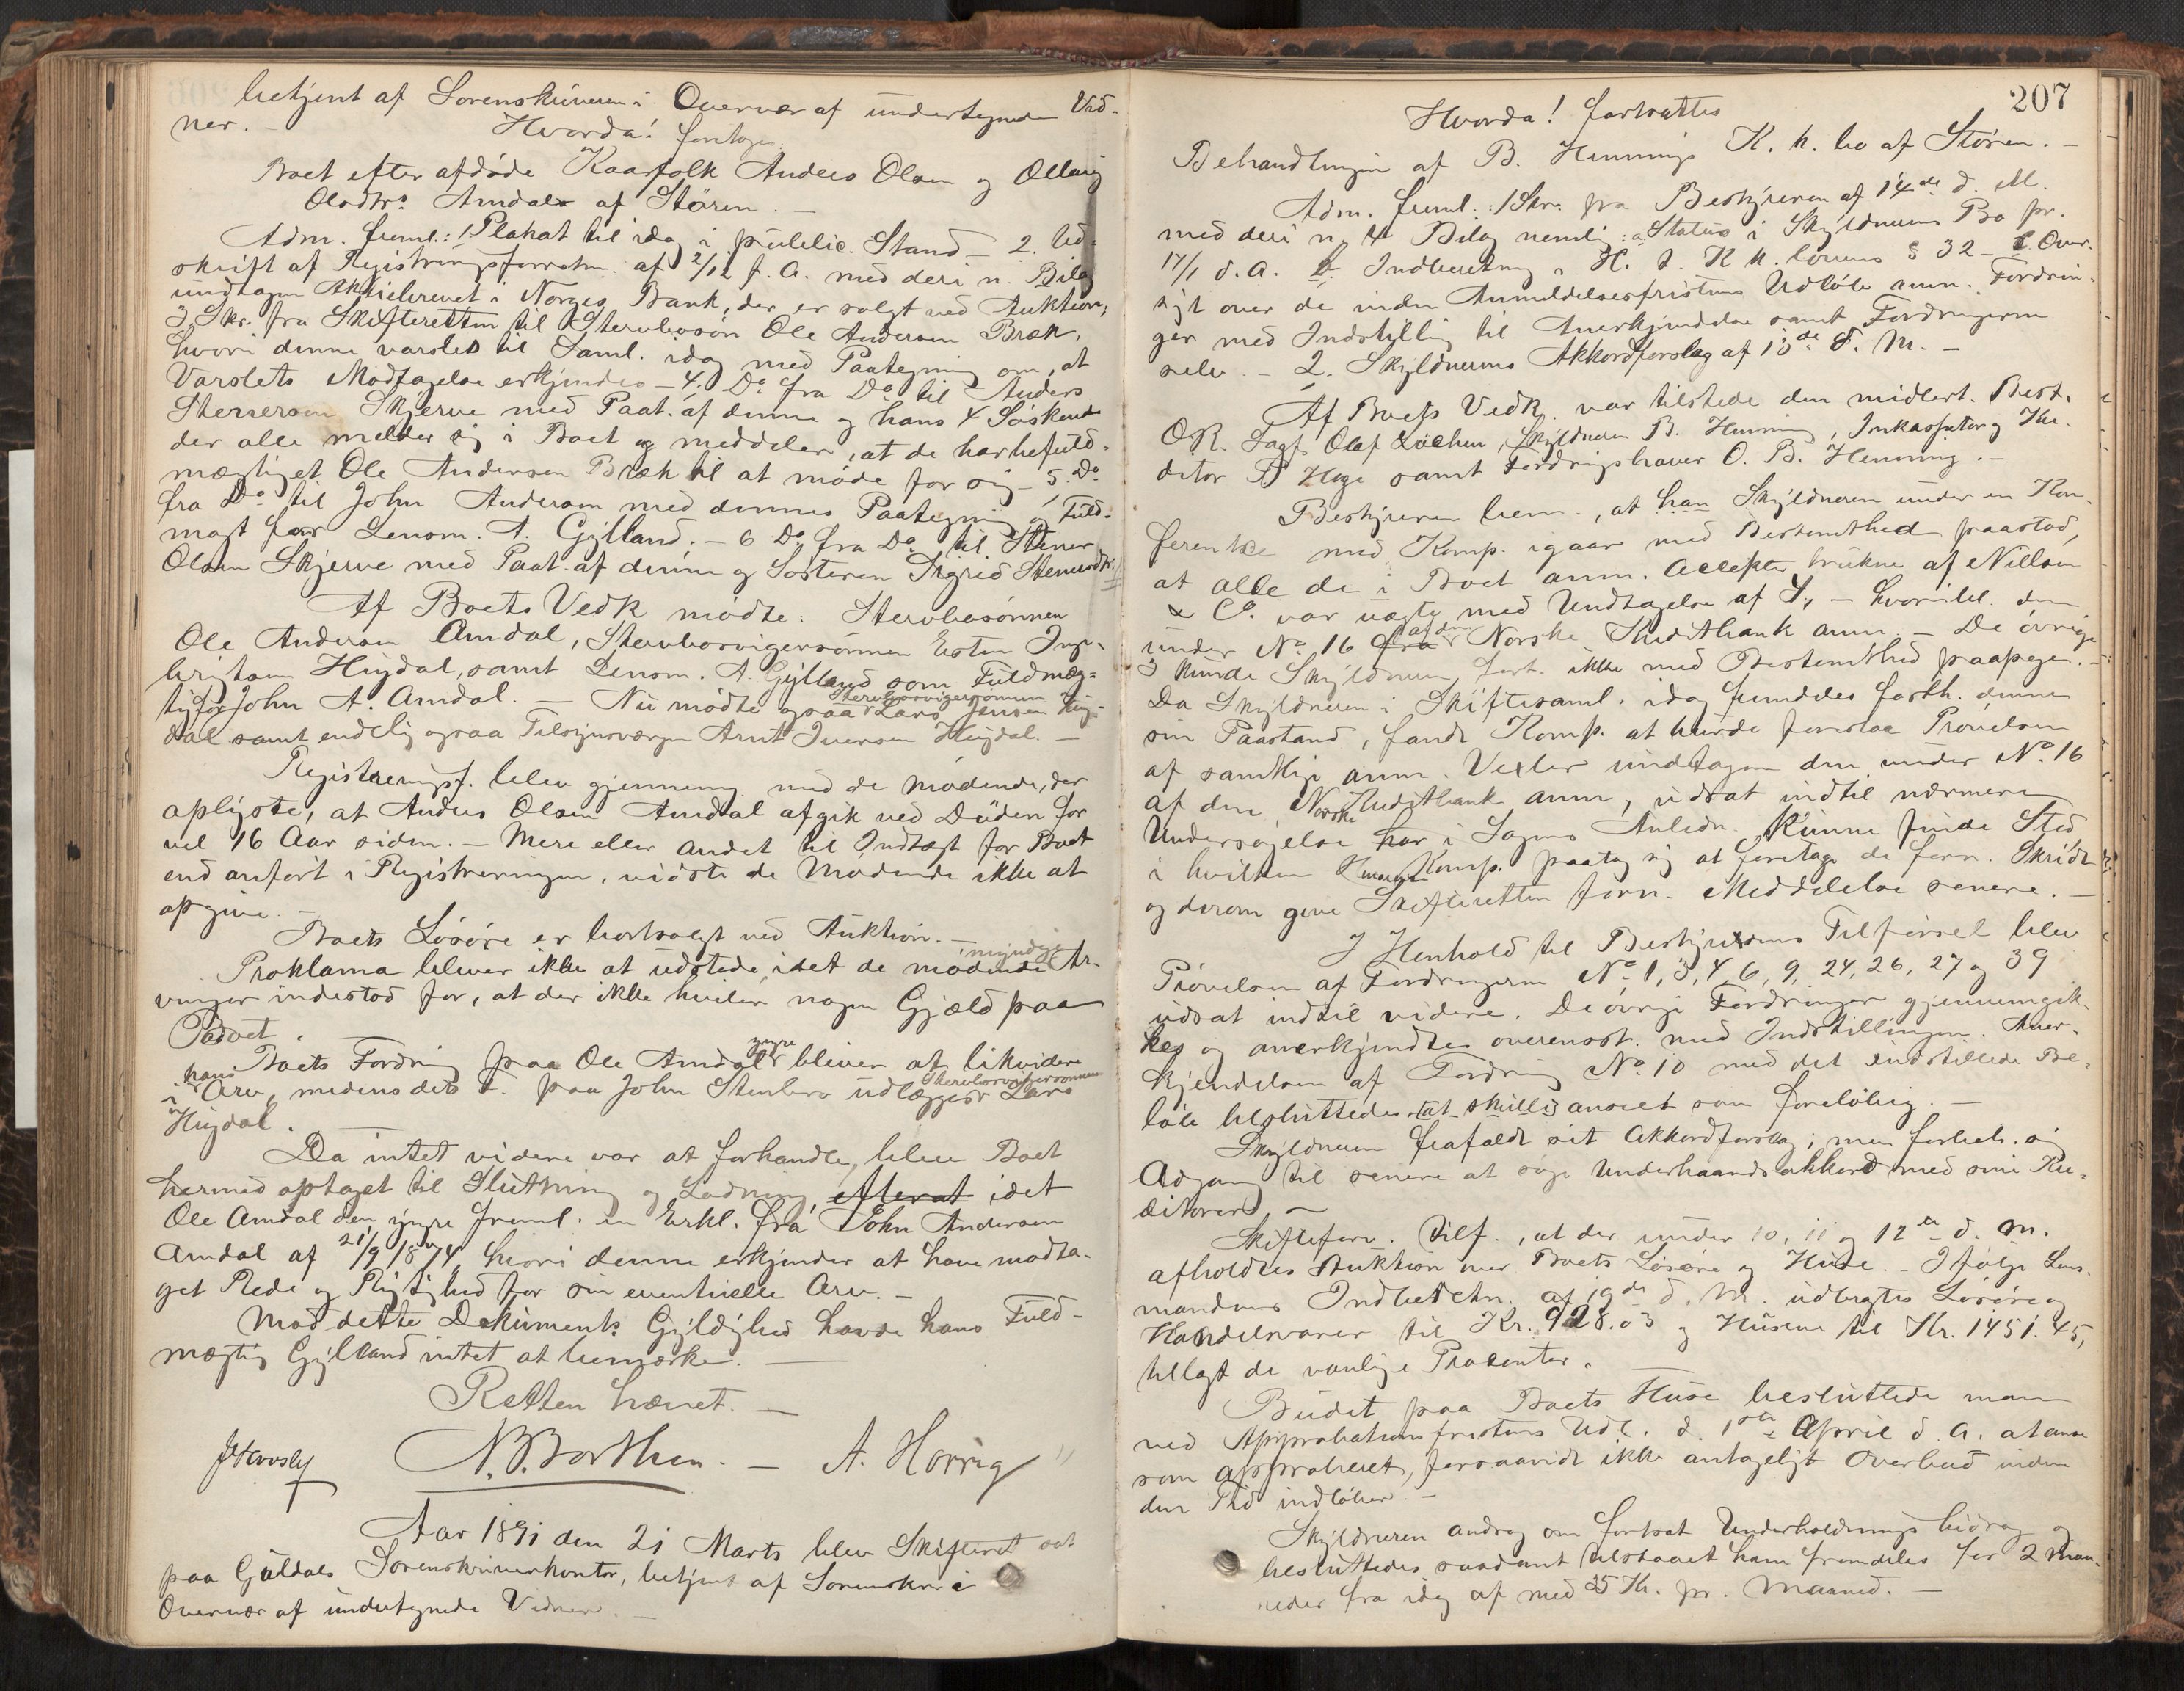 betjent af Sorenskriveren i Overvær af undertegnede Vid-
ner. -
Hvorda! foretoges
Boet efter afdøde Kaarfolk Anders Olsen og Ollaug
Olsdtr. Amdal af Støren. -
Adm. freml.: 1. Plakat til idag i public. Stand - 2. Ud-
skrift af Registreringsforretn. af 2/12 f. A. med deri n. Bilag
undtagen Aktiebrevet i Norges Bank, der er solgt ved Auktion;
3 Skr. fra Skifteretten til Stervbosøn Ole Andersen Bræk,
hvori denne varsles til Saml. idag med Paategning om, at
Varslets Modtagelse erkjendes - 4. Do fra Do til Anders
Skjerve med Paat. af denne og hans 4 Søskende
der alle melder sig i Boet og meddeler, at de har befuld-
mægtiget Ole Andersen Bræk til at møde for sig - 5. Do
fra Do til John Andersen med dennes Paategning og Fuld-
magt for Lensm. A. Gylland. - 6 Do fra Do til Stener
Olsen Skjerve med Paat. af denne og Søsteren Sigrid Stenersdtr.
Af Boets Vedk mødte: Stervbosønnen
Ole Andersen Amdal, Stervbosvigersønnen Esten Inge-
brigtsen Hugdal, samt Lensm. A. Gylland som Fuldmæg-
tig for John A. Amdal. - Nu mødte ogsaa Stervbosvigersønnen Lars Jensen Hug-
dal samt endelig ogsaa Tilsynsværgen Arnt Iversen Hugdal. -
Registreringsf. blev gjennemg. med de mødende, der
oplyste, at Anders Olsen Amdal afgik ved Døden for
vel 16 Aar siden. - Mere eller andet til Indtægt for Boet
end anført i Registreringen, vidste de Mødende ikke at
opgive. -
Boets Løsøre er bortsolgt ved Auktion. -
Proklama bliver ikke at udstede, idet de mødende myndige Ar-
vinger indestod for, at der ikke hviler nogen Gjæld paa
Boet.
Boets Fordring paa Ole Amdal yngre bliver at likvidere
i hans Arv, medens dets F. paa John Stenbro udlægges Stervbosvigersønnen Lars
Hugdal. -
Da intet videre var at forhandle, blev Boet
hermed optaget til Slutning og Lodning, efterat idet
Ole Amdal den yngre freml. en Erkl. fra John Andersen
Amdal af 21/9 1874, hvori denne erkjender at have modta-
get Rede og Rigtighed for sin eventuelle Arv. -
Mod dette Dokuments Gyldighed havde hans Fuld-
mægtig Gylland intet at bemærke. -
Retten hævet. -
N. B. Borthen. - A. Horrig
Aar 1891 den 21 Marts blev Skifteret sat
paa Guldals Sorenskriverkontor, betjent af Sorenskr. i
Overvær af undertegnede Vidner. -
207
Hvorda! fortsattes
Behandlingen af B. Hennings K. k. bo af Støren. -
Adm. freml.: 1 Skr. fra Bestyreren af 14de d. M.
med deri n. 4 Bilag nemlig: a Status i Skyldnerens Bo pr.
17/1 d. A. b. Indberetning i H. t. K k. lovens § 32 - c Over-
sigt over de inden Anmeldelsesfristens Udløb anm. Fordrin-
ger med Indstilling til Anerkjendelse samt Fordringerne
selv. - 2. Skyldnerens Akkordforslag af 13de d. M. -
Af Boets Vedk. var tilstede den midlert. Best.
OR. Sagf. Olaf Lochen, Skyldneren B. Henning, Inkassator og Kre-
ditor Hage samt Fordringshaver O. B. Henning. -
Bestyreren bem., at han Skyldneren under en Kon-
ference med Komp. igaar med Bestemthed paastod,
at alle de i Boet anm. Accepter trukne af Nilsson
& Co. var uægte med Undtagelse af 4, - hvoribl. den
under No 16 fra af den Norske Kreditbank anm. - De øvrige
3 kunde Skyldneren fort. ikke med Bestemthed paapege. -
Da Skyldneren i Skiftesaml. idag fremdeles fasth. denne
sin Paastand, fandt Komp. at burde foreslaa Prøvelsen
af samtlige anm. Vexler undtagen den under No 16
af den Norske Kreditbank anm., udsat indtil nærmere
Undersøgelse har i Sagens Anledn. kunne finde Sted
i hvilken Komp. paatog sig at foretage de forn. Skridt
og derom give Skifteretten forn. Meddelelse senere. -
I Henhold til Bestyrerens Tilførsel blev
Prøvelsen af Fordringerne No 1, 3, 4, 6, 9, 24, 26, 27 og 39
udsat indtil videre. De øvrige Fordringer gjennemgik-
kes og anerkjendtes overensst. med Indstillingen. Aner-
kjendelsen af Fordring No 10 med det indstillede Be-
løb besluttedes at skulle anseet som foreløbig. -
Skyldneren frafaldt sit Akkordforslag; men forbeh. sig
Adgang til senere at søge Underhaandsakkord med sine Kre-
ditorer. -
Skifteforv. tilf., at der under 10, 11 og 12te d. M.
afholdtes Auktion over Boets Løsøre og Huse. - Ifølge Lens-
mandens Indberetn. af 19de d. M. udbragtes Løsøre og
Handelsvarer til Kr. 928.03 og Husene til Kr. 1451.45,
tillagt de vanlige Procenter.
Budet paa Boets Huse besluttede man
ved Approbationsfristens Udl. d. 1ste April d. A. at anse
som approberet, forsaavidt ikke antageligt Overbud inden
den Tid indløber. -
Skyldneren androg om fortsat Underholdnings bidrag og
besluttedes saadant tilstaaet ham fremdeles for 2 Maa-
neder fra idag af med 25 Kr. pr. Maaned. -